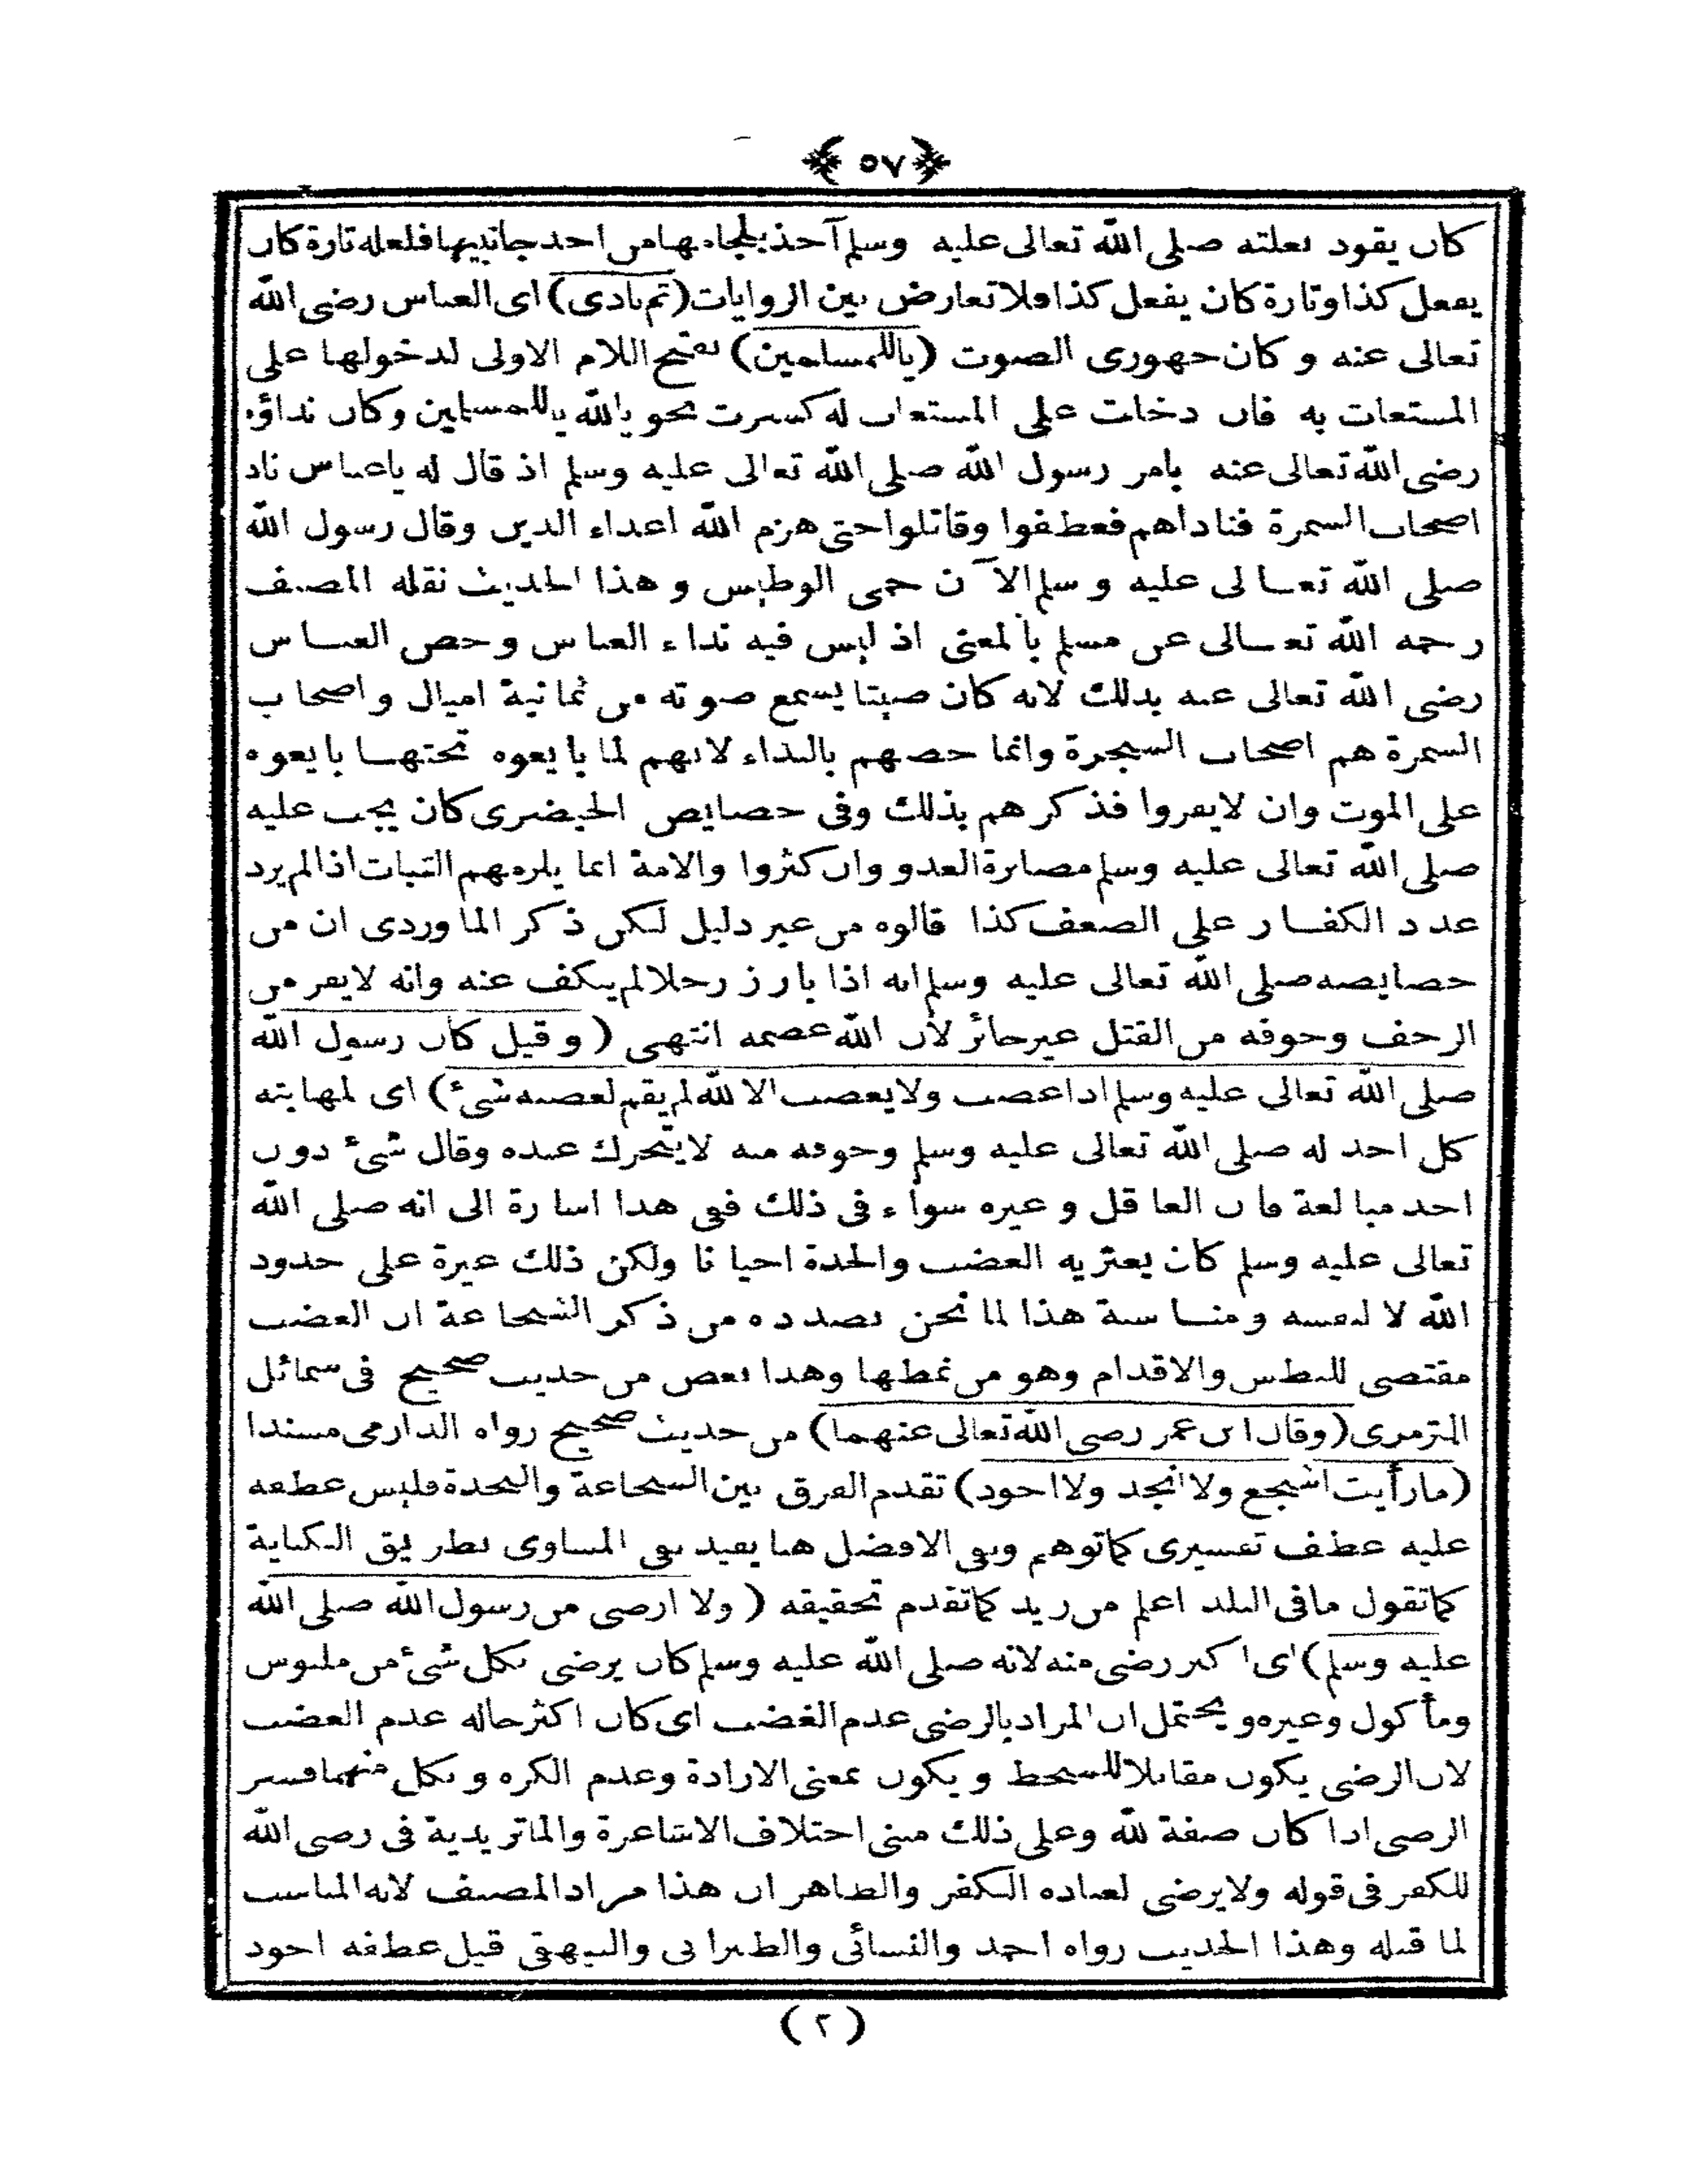 ﴿ ٥٧ ﴾
كان يقود بغلته صلى الله تعالى عليه وسلم آخذ بلجامها من احد جانبيها فلعله تارة كان
يفعل كذا وتارة كان يفعل كذا فلا تعارض بين الروايات (ثم نادى) اى العباس رضى الله
تعالى عنه و كان جهورى الصوت (ياللمسلمين) بفتح اللام الاولى لدخولها على
المستغاث به فان دخلت على المستغاث له كسرت نحو يالله ياللمسلمين وكان نداؤه
رضى الله تعالى عنه بامر رسول الله صلى الله تعالى عليه وسلم اذ قال له ياعباس ناد
اصحاب السمرة فناداهم فعطفوا وقاتلوا حتى هزم الله اعداء الدين وقال رسول الله
صلى الله تعالى عليه وسلم الآن حمى الوطيس و هذا الحديث نقله المصنف
رحمه الله تعالى عن مسلم بالمعنى اذ ليس فيه نداء العباس وخص العباس
رضى الله تعالى عنه بذلك لانه كان صيتا يسمع صوته من ثمانية اميال واصحاب
السمرة هم اصحاب الشجرة وانما خصهم بالنداء لانهم لما بايعوه تحتها بايعوه
على الموت وان لايفروا فذكرهم بذلك وفى خصايص الخيضرى كان يجب عليه
صلى الله تعالى عليه وسلم مصابرة العدو وان كثروا والامة انما يلزمهم الثبات اذا لم يزد
عدد الكفار على الضعف كذا قالوه من غير دليل لكن ذكر الماوردى ان من
خصايصه صلى الله تعالى عليه وسلم انه اذا بارز رجلا لم ينكف عنه وانه لايفر من
الزحف وخوفه من القتل غير جائز لان الله عصمه انتهى (وقيل كان رسول الله
صلى الله تعالى عليه وسلم اذا غضب ولا يغضب الا لله لم يقم لغضبه شئ) اى لمهابته
كل احد له صلى الله تعالى عليه وسلم وخوفه منه لايتحرك عنده وقال شئ دون
احد مبالغة فان العاقل وغيره سواء فى ذلك ففى هذا اشارة الى انه صلى الله
تعالى عليه وسلم كان يعتريه الغضب والحدة احيانا ولكن ذلك غيرة على حدود
الله لا لنفسه ومناسبة هذا لما نحن بصدده من ذكر الشجاعة ان الغضب
مقتضى للبطش والاقدام وهو من نمطها وهذا بعض من حديث صحيح فى شمائل
الترمذى (وقال ابن عمر رضى الله تعالى عنهما) من حديث صحيح رواه الدارمى مسندا
(ما رأيت اشجع ولا انجد ولا اجود) تقدم الفرق بين الشجاعة والنجدة فليس عطفه
عليه عطف تفسيرى كما توهم ونفى الافضل هنا يفيد نفى المساوى بطريق الكناية
كما تقول مافى البلد اعلم من زيد كما تقدم تحقيقه (ولا ارضى من رسول الله صلى الله
عليه وسلم) اى اكبر رضى منه لانه صلى الله عليه وسلم كان يرضى بكل شئ من ملبوس
ومأكول وغيره ويحتمل ان المراد بالرضى عدم الغضب اى كان اكثر حاله عدم الغضب
لان الرضى يكون مقابلا للسخط ويكون بمعنى الارادة وعدم الكره وبكل منهما فسر
الرضى اذا كان صفة لله وعلى ذلك مبنى اختلاف الاشاعرة والماتريدية فى رضى الله
للكفر فى قوله ولا يرضى لعباده الكفر والظاهر ان هذا مراد المصنف لانه المناسب
لما قبله وهذا الحديث رواه احمد والنسائى والطبرانى والبيهقى قيل عطفه اجود
(٢)